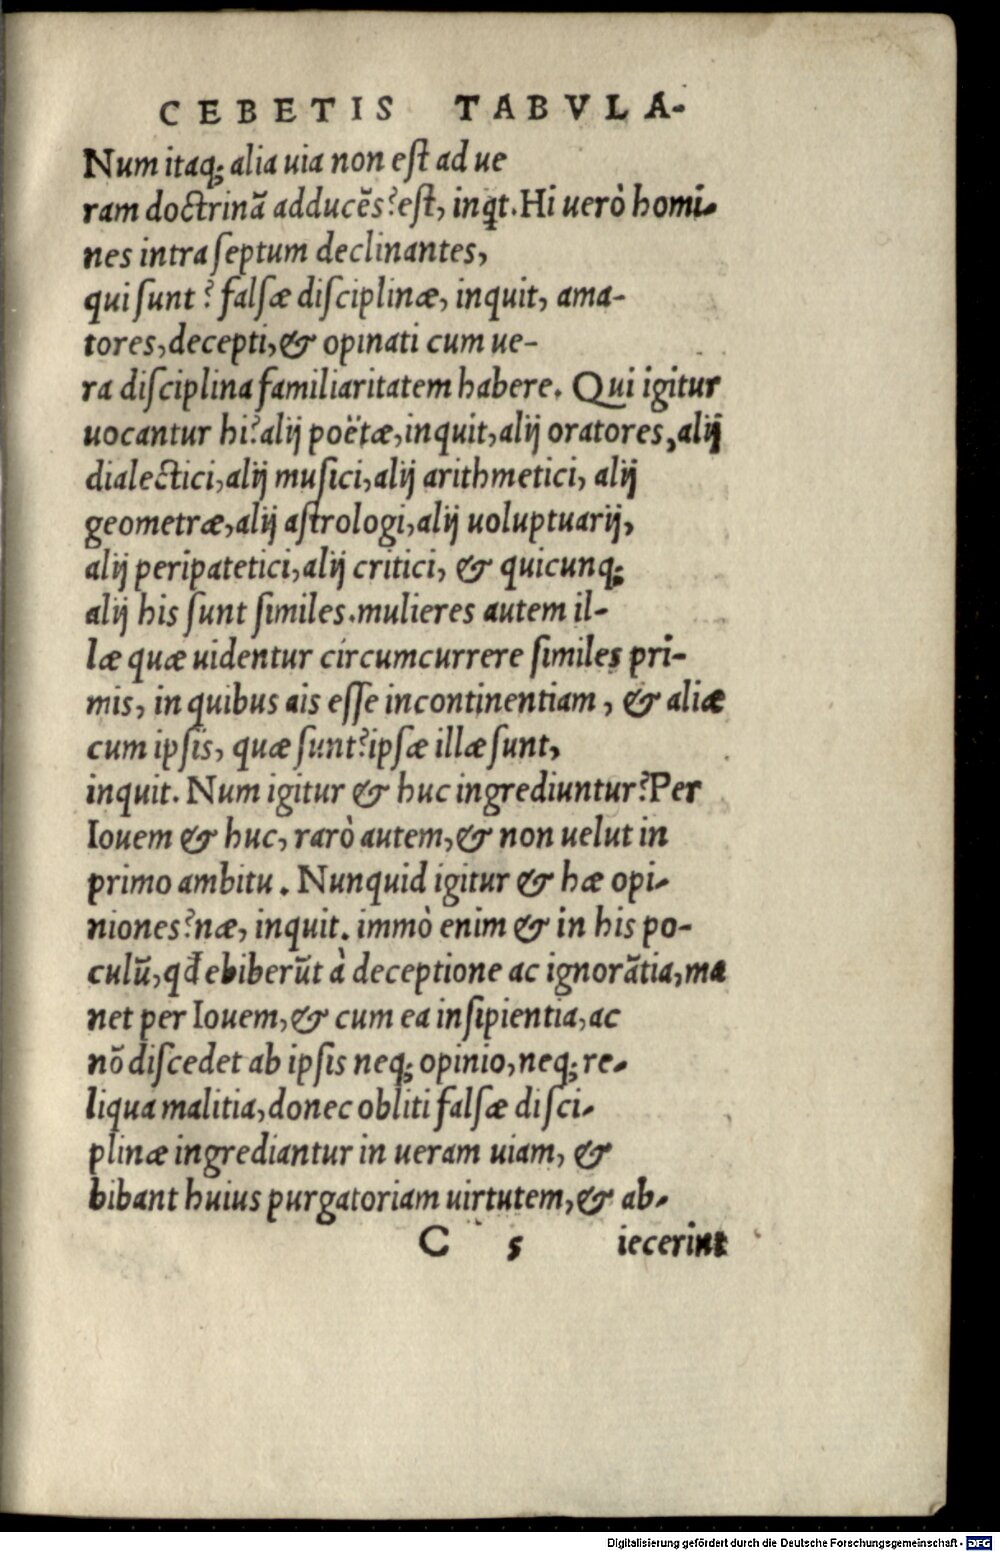 CEBETIS TABVLA-
Num itaq; alia uia non eſt ad ue
ram doctrinã adducẽs? eſt, inqt. Hi uerò homi-
nes intra ſeptum declinantes,
qui ſunt? falſæ diſciplinæ, inquit, ama-
tores, decepti, & opinati cum ue-
ra diſciplina familiaritatem habere. Qui igitur
uocantur hi? alij poëtæ, inquit, alij oratores, alij
dialectici, alij muſici, alij arithmetici, alij
geometræ, alij aſtrologi, alij uoluptuarij,
alij peripatetici, alij critici, & quicunq;
alij his ſunt ſimiles. mulieres autem il-
læ quæ uidentur circumcurrere ſimiles pri-
mis, in quibus ais eſſe incontinentiam, & aliæ
cum ipſis, quæ ſunt? ipſæ illæ ſunt,
inquit. Num igitur & huc ingrediuntur? Per
Iouem & huc, rarò autem, & non uelut in
primo ambitu. Nunquid igitur & hæ opi-
niones? næ, inquit. immò enim & in his po-
culũ, qđ ebiberũt à deceptione ac ignorãtia, ma
net per Iouem, & cum ea inſipientia, ac
nõ diſcedet ab ipſis neq; opinio, neq; re-
liqua malitia, donec obliti falſæ diſci-
plinæ ingrediantur in ueram uiam, &
bibant huius purgatoriam uirtutem, & ab-
C 5 iecerint
Digitalisierung gefördert durch die Deutsche Forschungsgemeinschaft - DFG